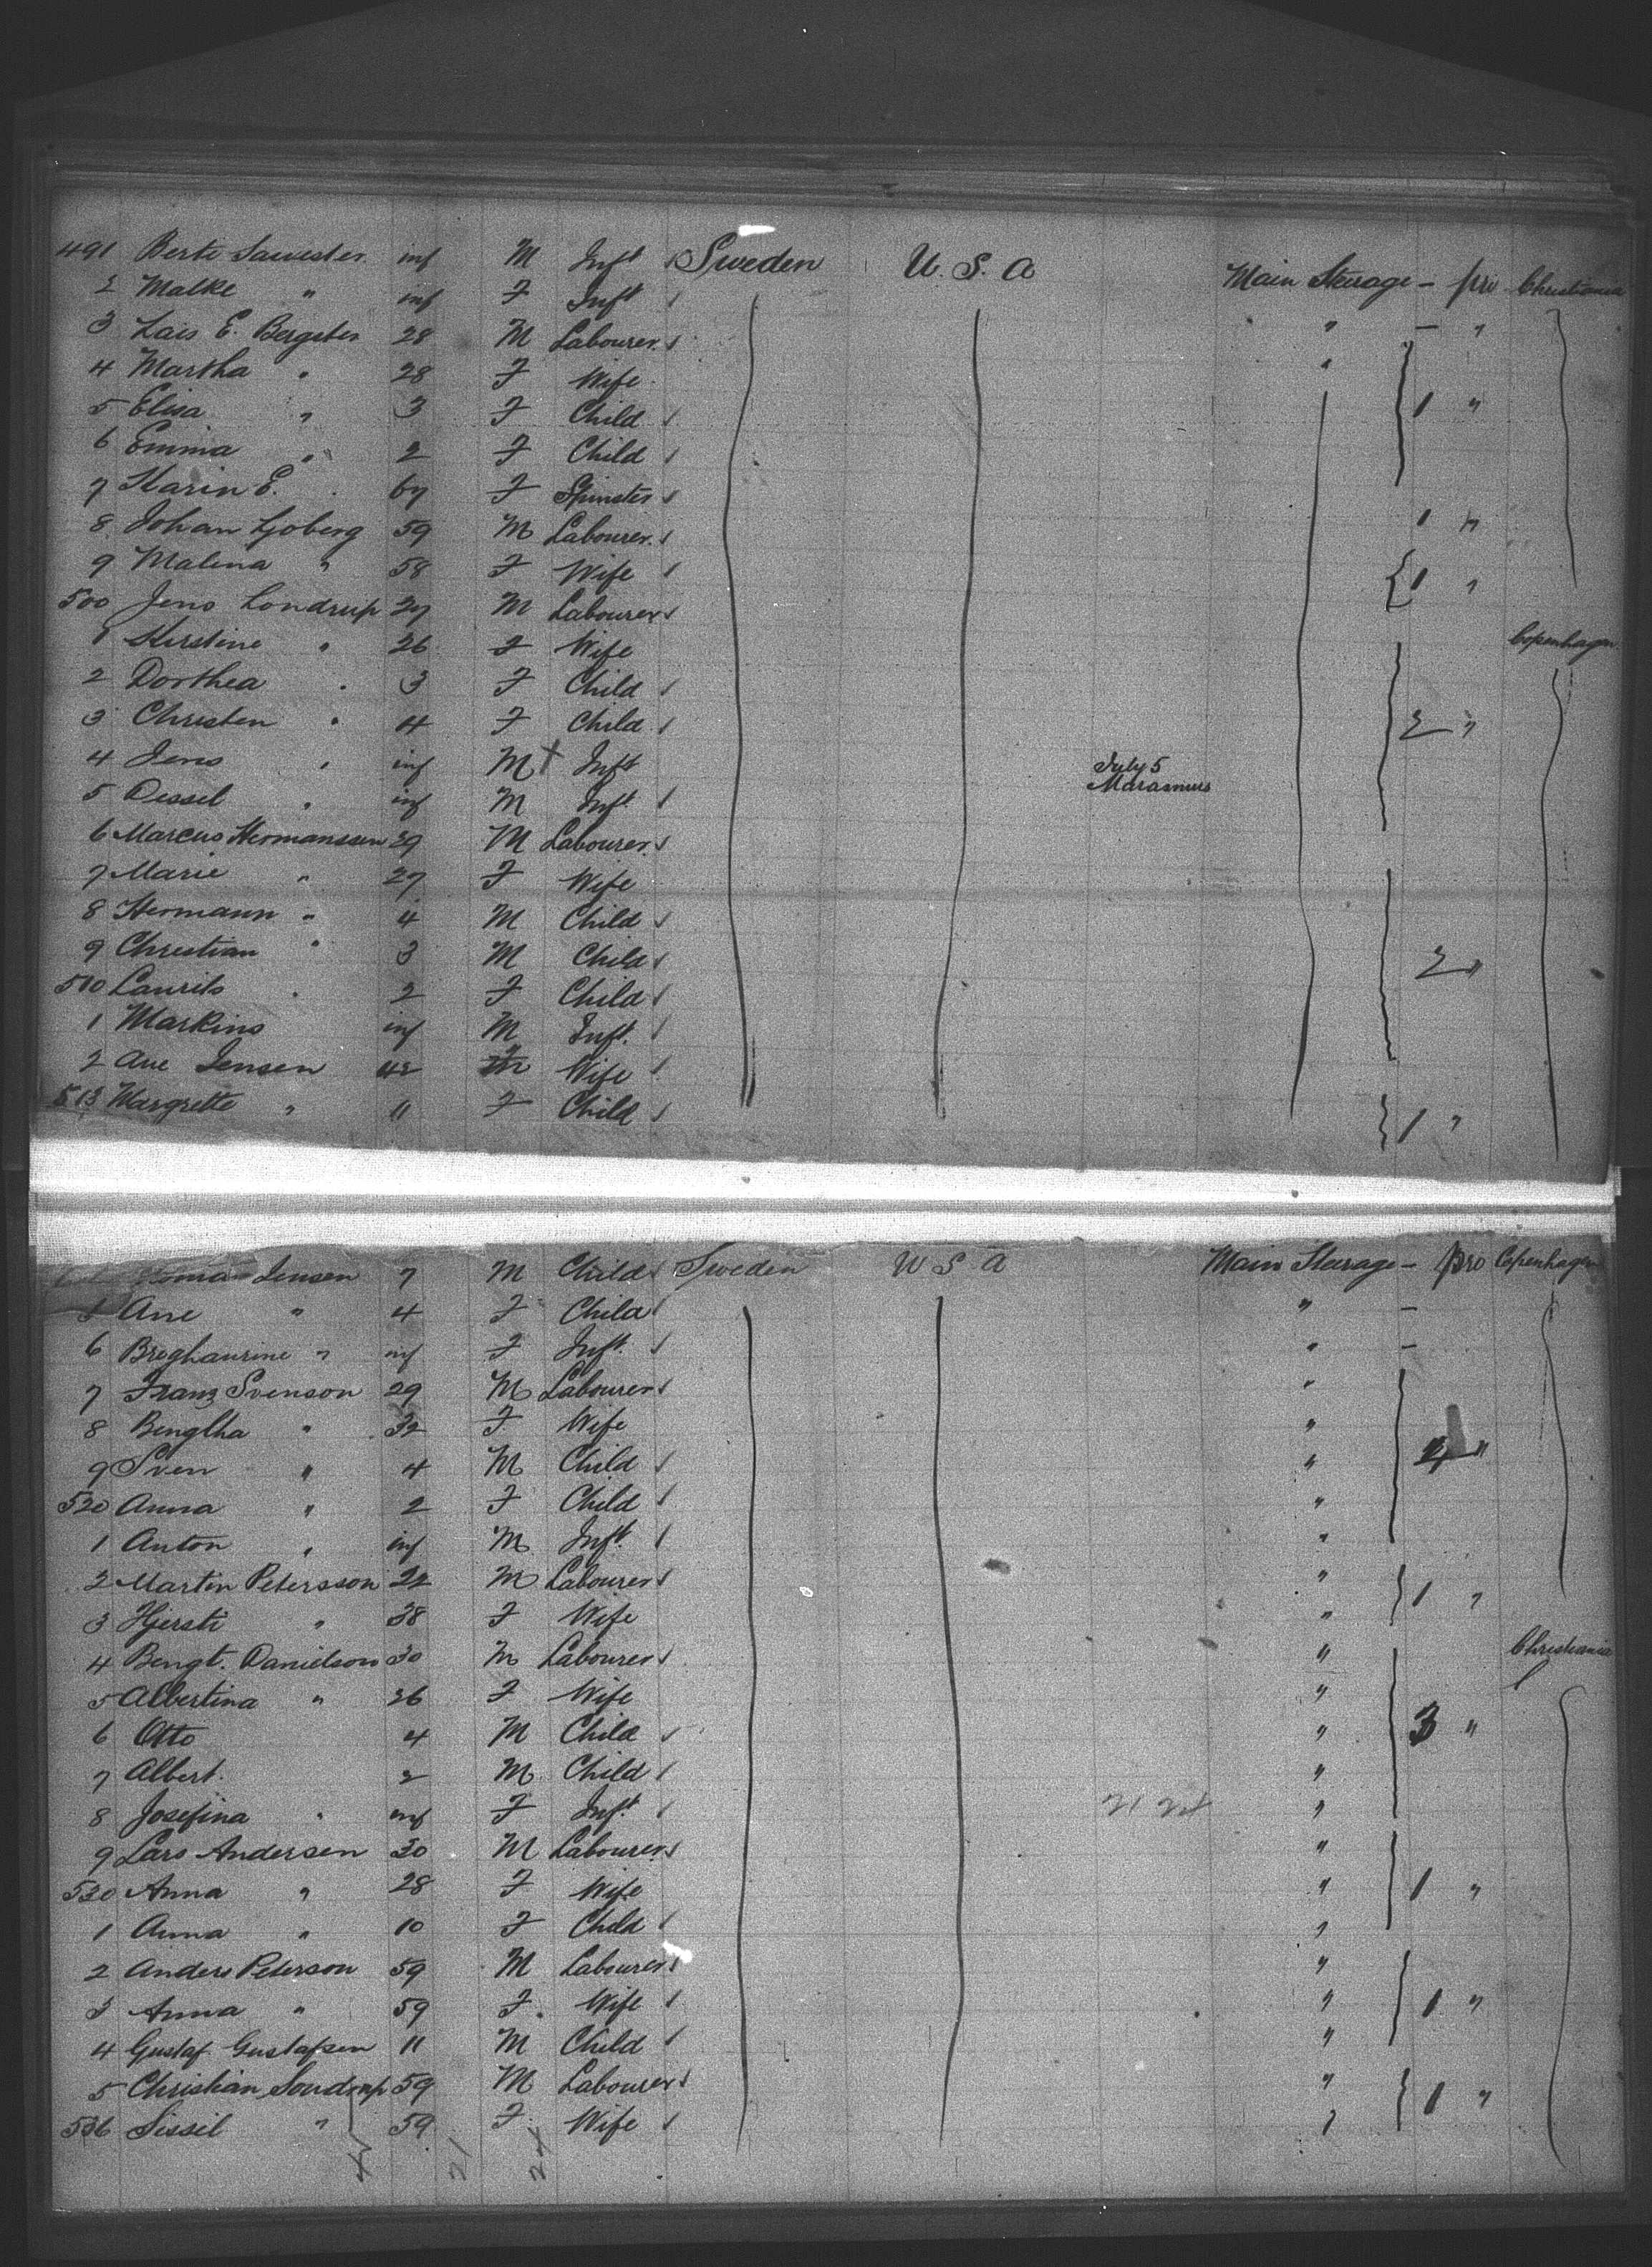 491 Berti Sawester inf M Inft Sweden U. S. A Main Steerage - pro Christiania
2 Malke " inf F Inft " - "
3 Lars E. Bergsten 28 M Labourer "
4 Martha " 28 F Wife
5 Elisa " 3 F Child 1 "
6 Emma " 2 F Child
7 Karin E. 67 F Spinster
8 Johan Ljoberg 59 M Labourer 1 "
9 Malena " 58 F Wife 1 "
500 Jens Londrup 27 M Labourer
1 Kirstine " 26 F Wife Copenhagen
2 Dorthea " 3 F Child
3 Christen " 4 F Child 2 "
4 Jens " inf M Inft July 5 Marasmus
5 Dessel " inf M Inft
6 Marcus Hermanssen 39 M Labourer
7 Marie " 27 F Wife
8 Hermann " 4 M Child
9 Christian " 3 M Child 2 "
510 Laurits " 2 F Child
1 Markins inf M Inft.
2 Ane Jensen 42 F Wife
513 Margrette " 11 F Child 1 "
Jensen 7 M Child Sweden U S A Main Steerage - pro Copenhagen
5 Ane " 4 F Child " -
6 Broghaurine " inf F Inft. " -
7 Franz Svenson 29 M Labourer "
8 Benglha " 32 F Wife "
9 Sven " 4 M Child " 2 "
520 Anna " 2 F Child "
1 Anton " inf M Inft. "
2 Martin Petersson 22 M Labourer " 1 "
3 Hjersti " 38 F Wife "
4 Bengt. Danielson 30 M Labourer " Christiania
5 Albertina " 26 F Wife "
6 Otto 4 M Child " 3 "
7 Albert. 2 M Child "
8 Josefina " inf F Inft. 21 24 "
9 Lars Andersen 30 M Labourer "
530 Anna " 28 F Wife " 1 "
1 Anna " 10 F Child "
2 Anders Peterson 59 M Labourer "
3 Anna " 59 F. Wife " 1 "
4 Gustaf Gustafsen 11 M Child "
5 Christian Soudrup 59 M Labourer " 1 "
536 Sissil " 59 F. Wife "
21 24